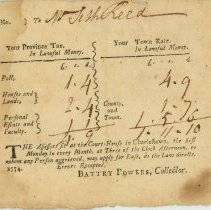 No. To Mr Seth Reed
Your Province Tax, Your Town Rate.
In Lawful Money. In Lawful Money.
Poll, 1.4 4.9
Houses and Lands, County, and Town,
Personal Estate and Faculty.
THE Assessors at the Court-House in Charlestown, the first
Monday in every Month, at Three of the Clock Afternoon, to
whom any Person aggrieved, may apply for Ease, as the Law directs.
Errors Excepted,
1774. BATTRY POWERS, Collector.